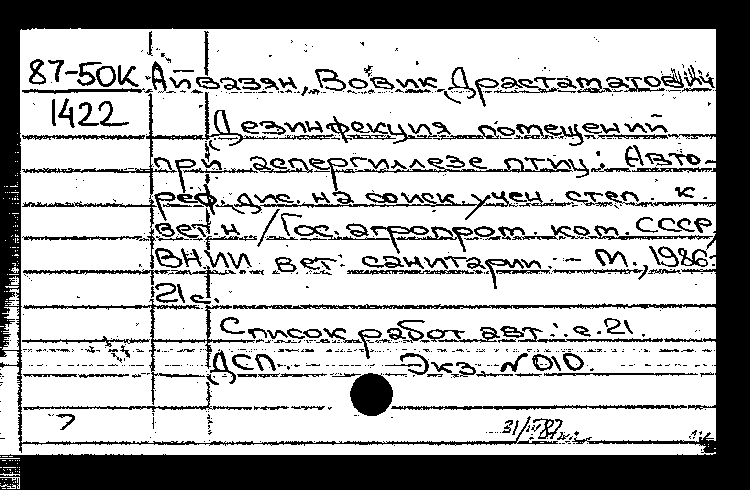 87-50К Айвазян, Вовик Драстаматович
1422
Дезинфекция помещений
при аспергиллезе птиц: Авто-
реф. дис. на соиск. учен. степ. к.
вет. н / Гос. агропром. ком. СССР,
ВНИИ вет. санитарии. - М., 1986.-
21 с.
Список работ авт.: с. 21.
ДСП. Экз. N 010.
7
31/III 87